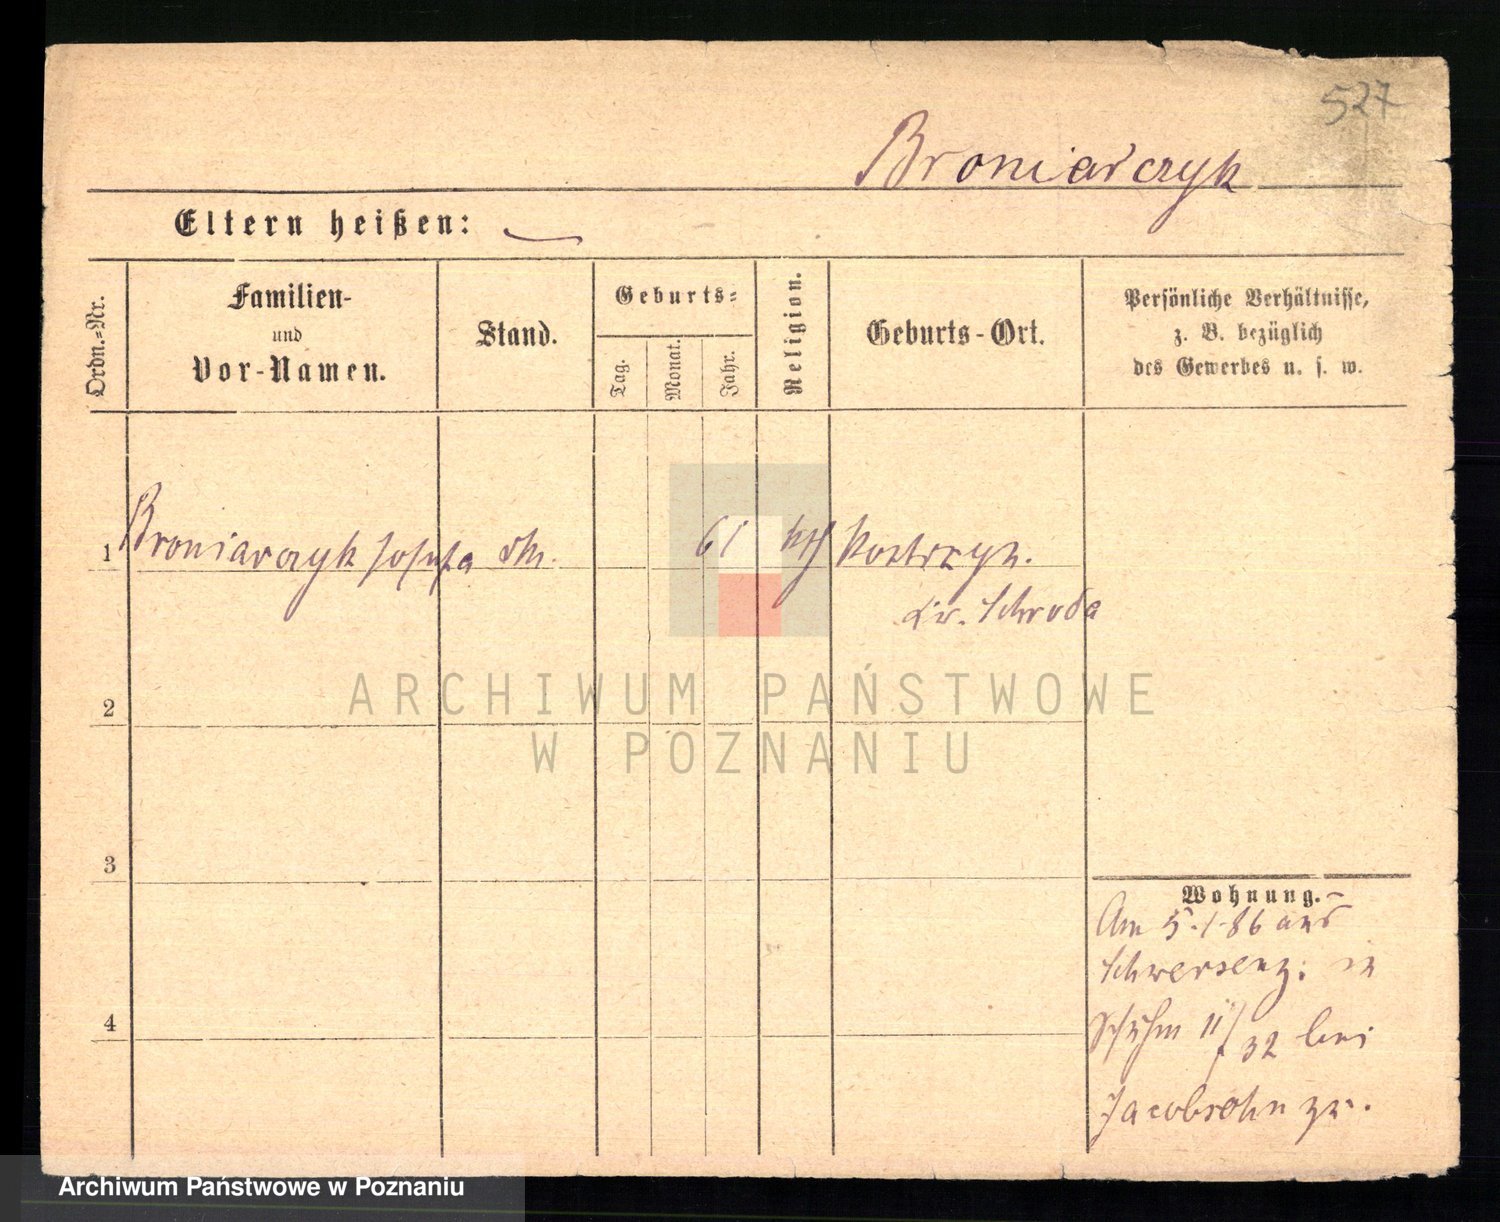 527
Broniarczyk
Eltern heißen:
Ordn.-Nr.
Familien-
und
Vor-Namen.
Stand.
Geburts-
Tag.
Monat.
Jahr.
Religion.
Geburts-Ort.
Persönliche Verhältnisse,
z. B. bezüglich
des Gewerbes u. s. w.
1 Broniarczyk Josepha 61 kth Kostrzyn.
Kr. Schroda
ARCHIWUM PAŃSTWOWE
W POZNANIU
2
3
4
Wohnung.
Am 5.1.86 aus
Schwersenz: in
11/32 bei
Jacobsohn zu.
Archiwum Państwowe w Poznaniu